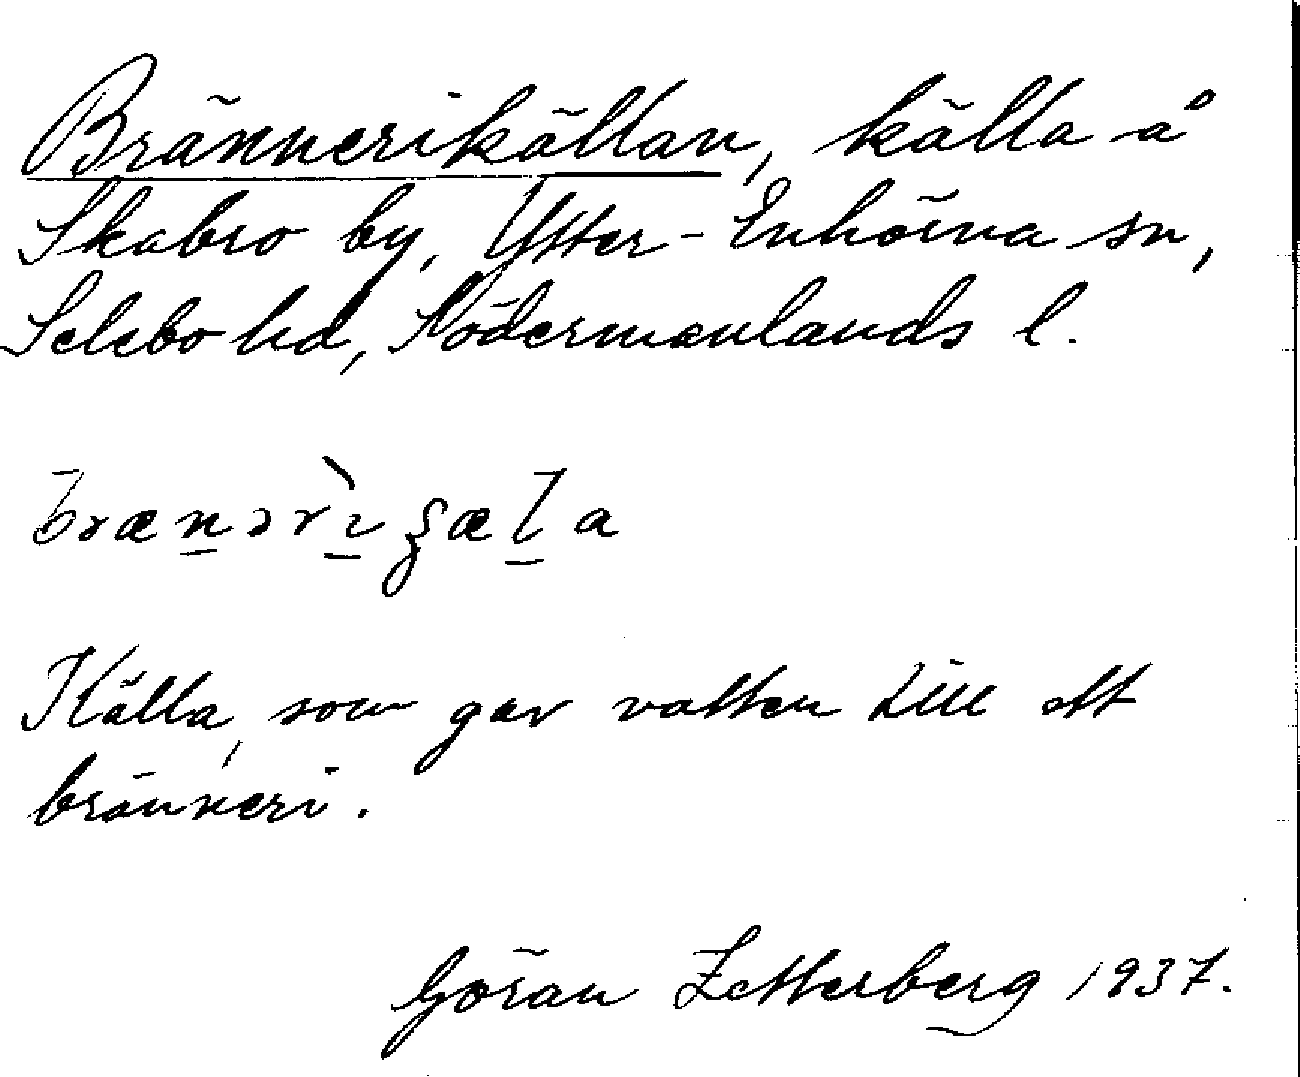 Brännerikällan, källa å
Skabro by, Ytter-Enhörna sn,
Selebo hd, Södermanlands l.
Källa, som gav vatten till ett
bränneri.
Göran Zetterberg 1937.